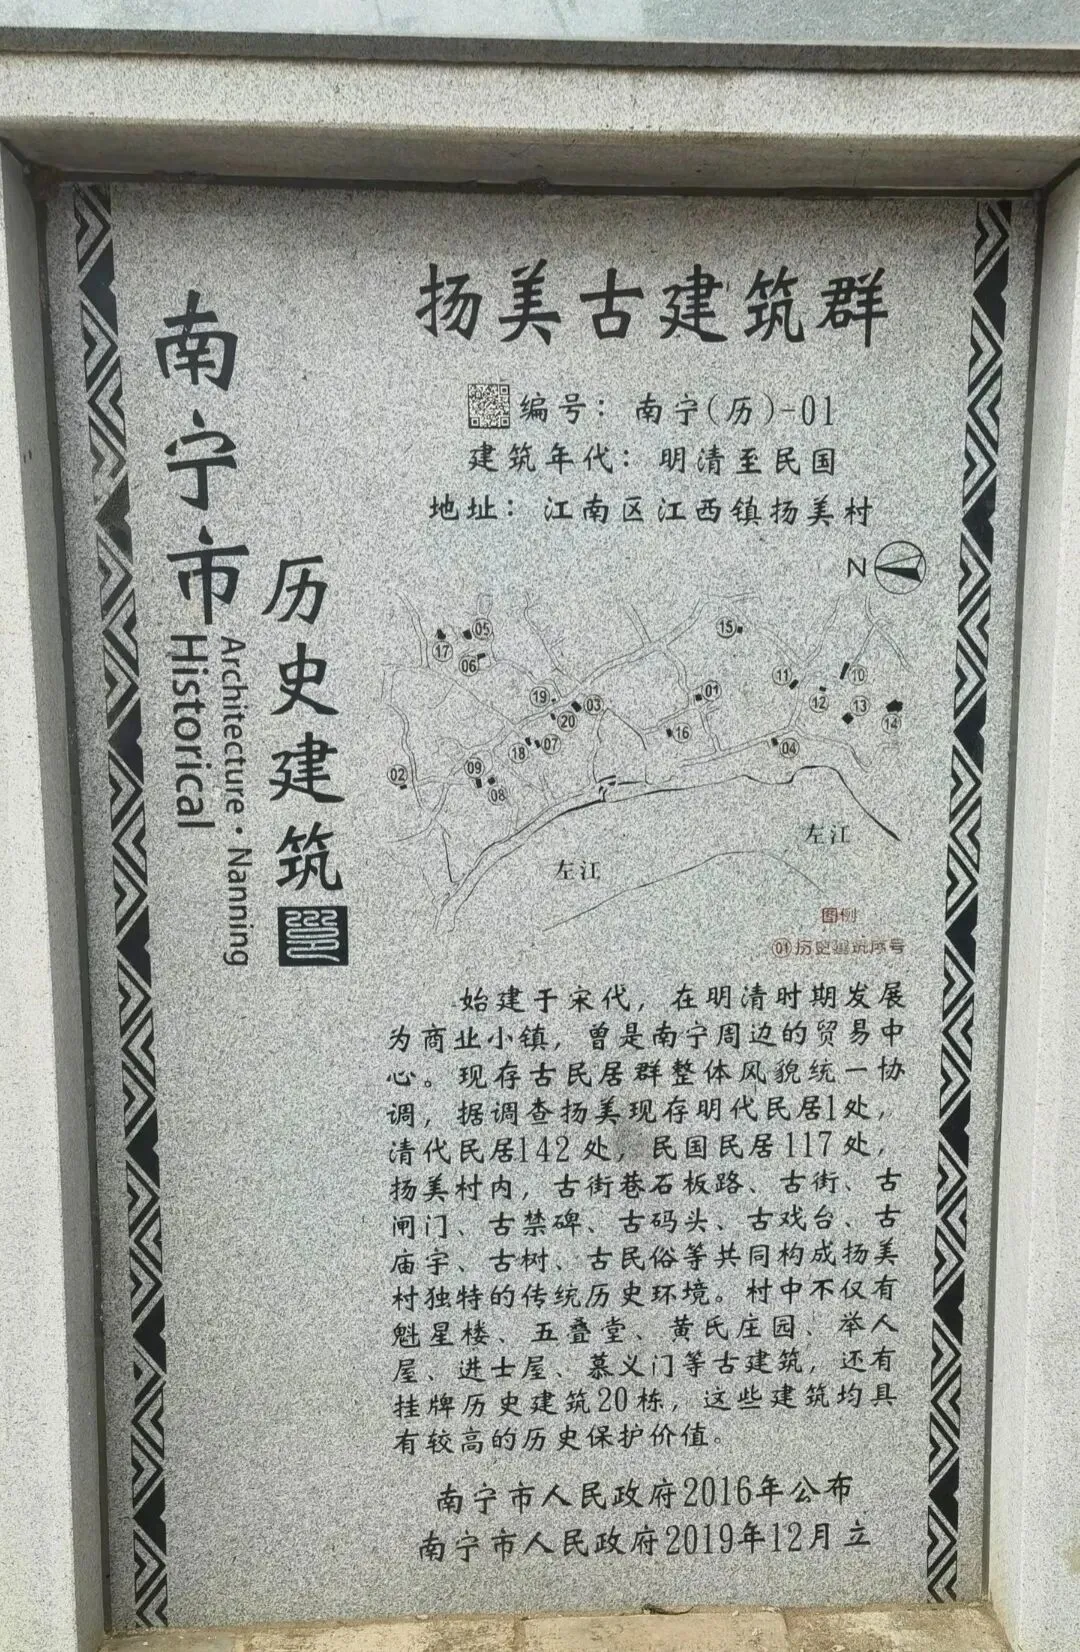 扬美古建筑群
编号：南宁(历)-01
建筑年代：明清至民国
地址：江南区江西镇扬美村
南宁市
历史建筑
Historical
Architecture·Nanning
N
05
17
06
15
11
10
12
13
14
19
03
20
01
16
18
07
04
02
09
08
左江
左江
图例
01 历史建筑序号
始建于宋代，在明清时期发展
为商业小镇，曾是南宁周边的贸易中
心。现存古民居群整体风貌统一协
调，据调查扬美现存明代民居1处，
清代民居142处，民国民居117处，
扬美村内，古街巷石板路、古街、古
闸门、古禁碑、古码头、古戏台、古
庙宇、古树、古民俗等共同构成扬美
村独特的传统历史环境。村中不仅有
魁星楼、五叠堂、黄氏庄园、举人
屋、进士屋、慕义门等古建筑，还有
挂牌历史建筑20栋，这些建筑均具
有较高的历史保护价值。
南宁市人民政府2016年公布
南宁市人民政府2019年12月立